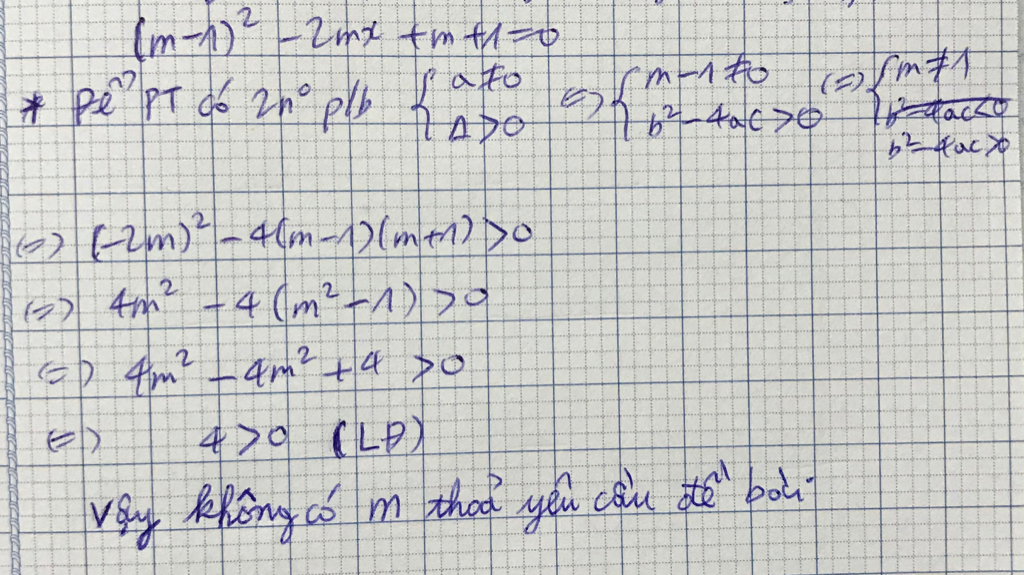 (m-1)² - 2mx + m + 1 = 0
* Để PT có 2n⁰ p/b { a ≠ 0 ⇔ { m - 1 ≠ 0 ⇔ { m ≠ 1
Δ > 0 b² - 4ac > 0 b² - 4ac < 0
b² - 4ac > 0
⇔ (-2m)² - 4(m-1)(m+1) > 0
⇔ 4m² - 4(m² - 1) > 0
⇔ 4m² - 4m² + 4 > 0
⇔ 4 > 0 (LĐ)
Vậy không có m thoả yêu cầu đề bài